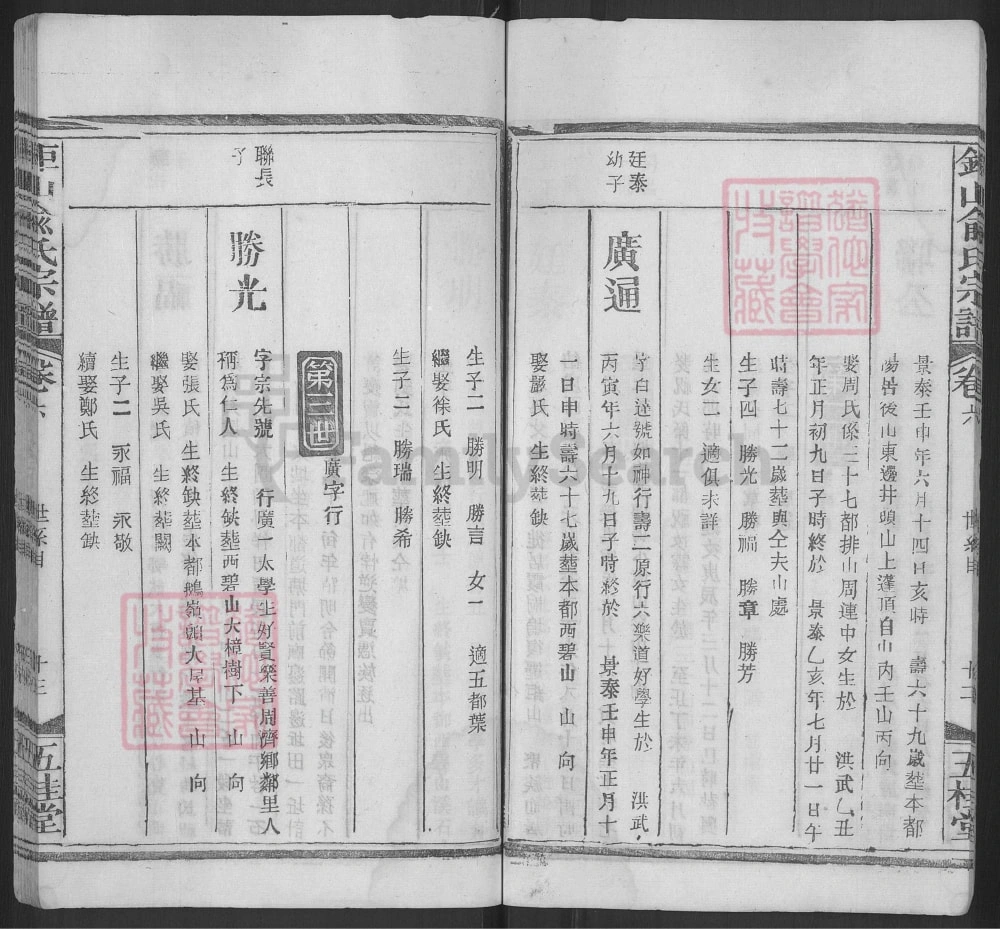 俞氏宗譜 卷六 世系 五桂堂
景泰壬申年六月十四日亥時 壽六十九歲塟本都
後山東邊井頭山上蓬頂自山內壬山丙向
娶周氏係三十七都排山周連中女生於 洪武乙丑
年正月初九日子時終於 景泰乙亥年七月廿一日午
時壽七十二歲塟與仝夫山處
生子四 勝光 勝福 勝章 勝芳
生女二 適俱未詳
廷泰幼子
廣通
字自達號如神行壽二原行六樂道好學生於 洪武
丙寅年六月十九日子時終於 景泰壬申年正月十
一日申時壽六十七歲塟本都西碧山 山 向
娶嚴氏 生終塟缺
生子二 勝明 勝言 女一 適五都葉
繼娶徐氏 生終塟缺
生子二 勝瑞 勝希
第三世
廣字行
聯長子
勝光
字宗先號 行廣一 太學生好賢樂善周濟鄉鄰里人
稱為仁人 生終缺塟西碧山大樟樹下 山 向
娶張氏 生終缺塟本都鵝嶺頭大屋基 山 向
繼娶吳氏 生終塟闕
生子二 永福 永敬
續娶鄭氏 生終塟缺
俞氏宗譜 卷六 世系 十三 五桂堂
FamilySearch